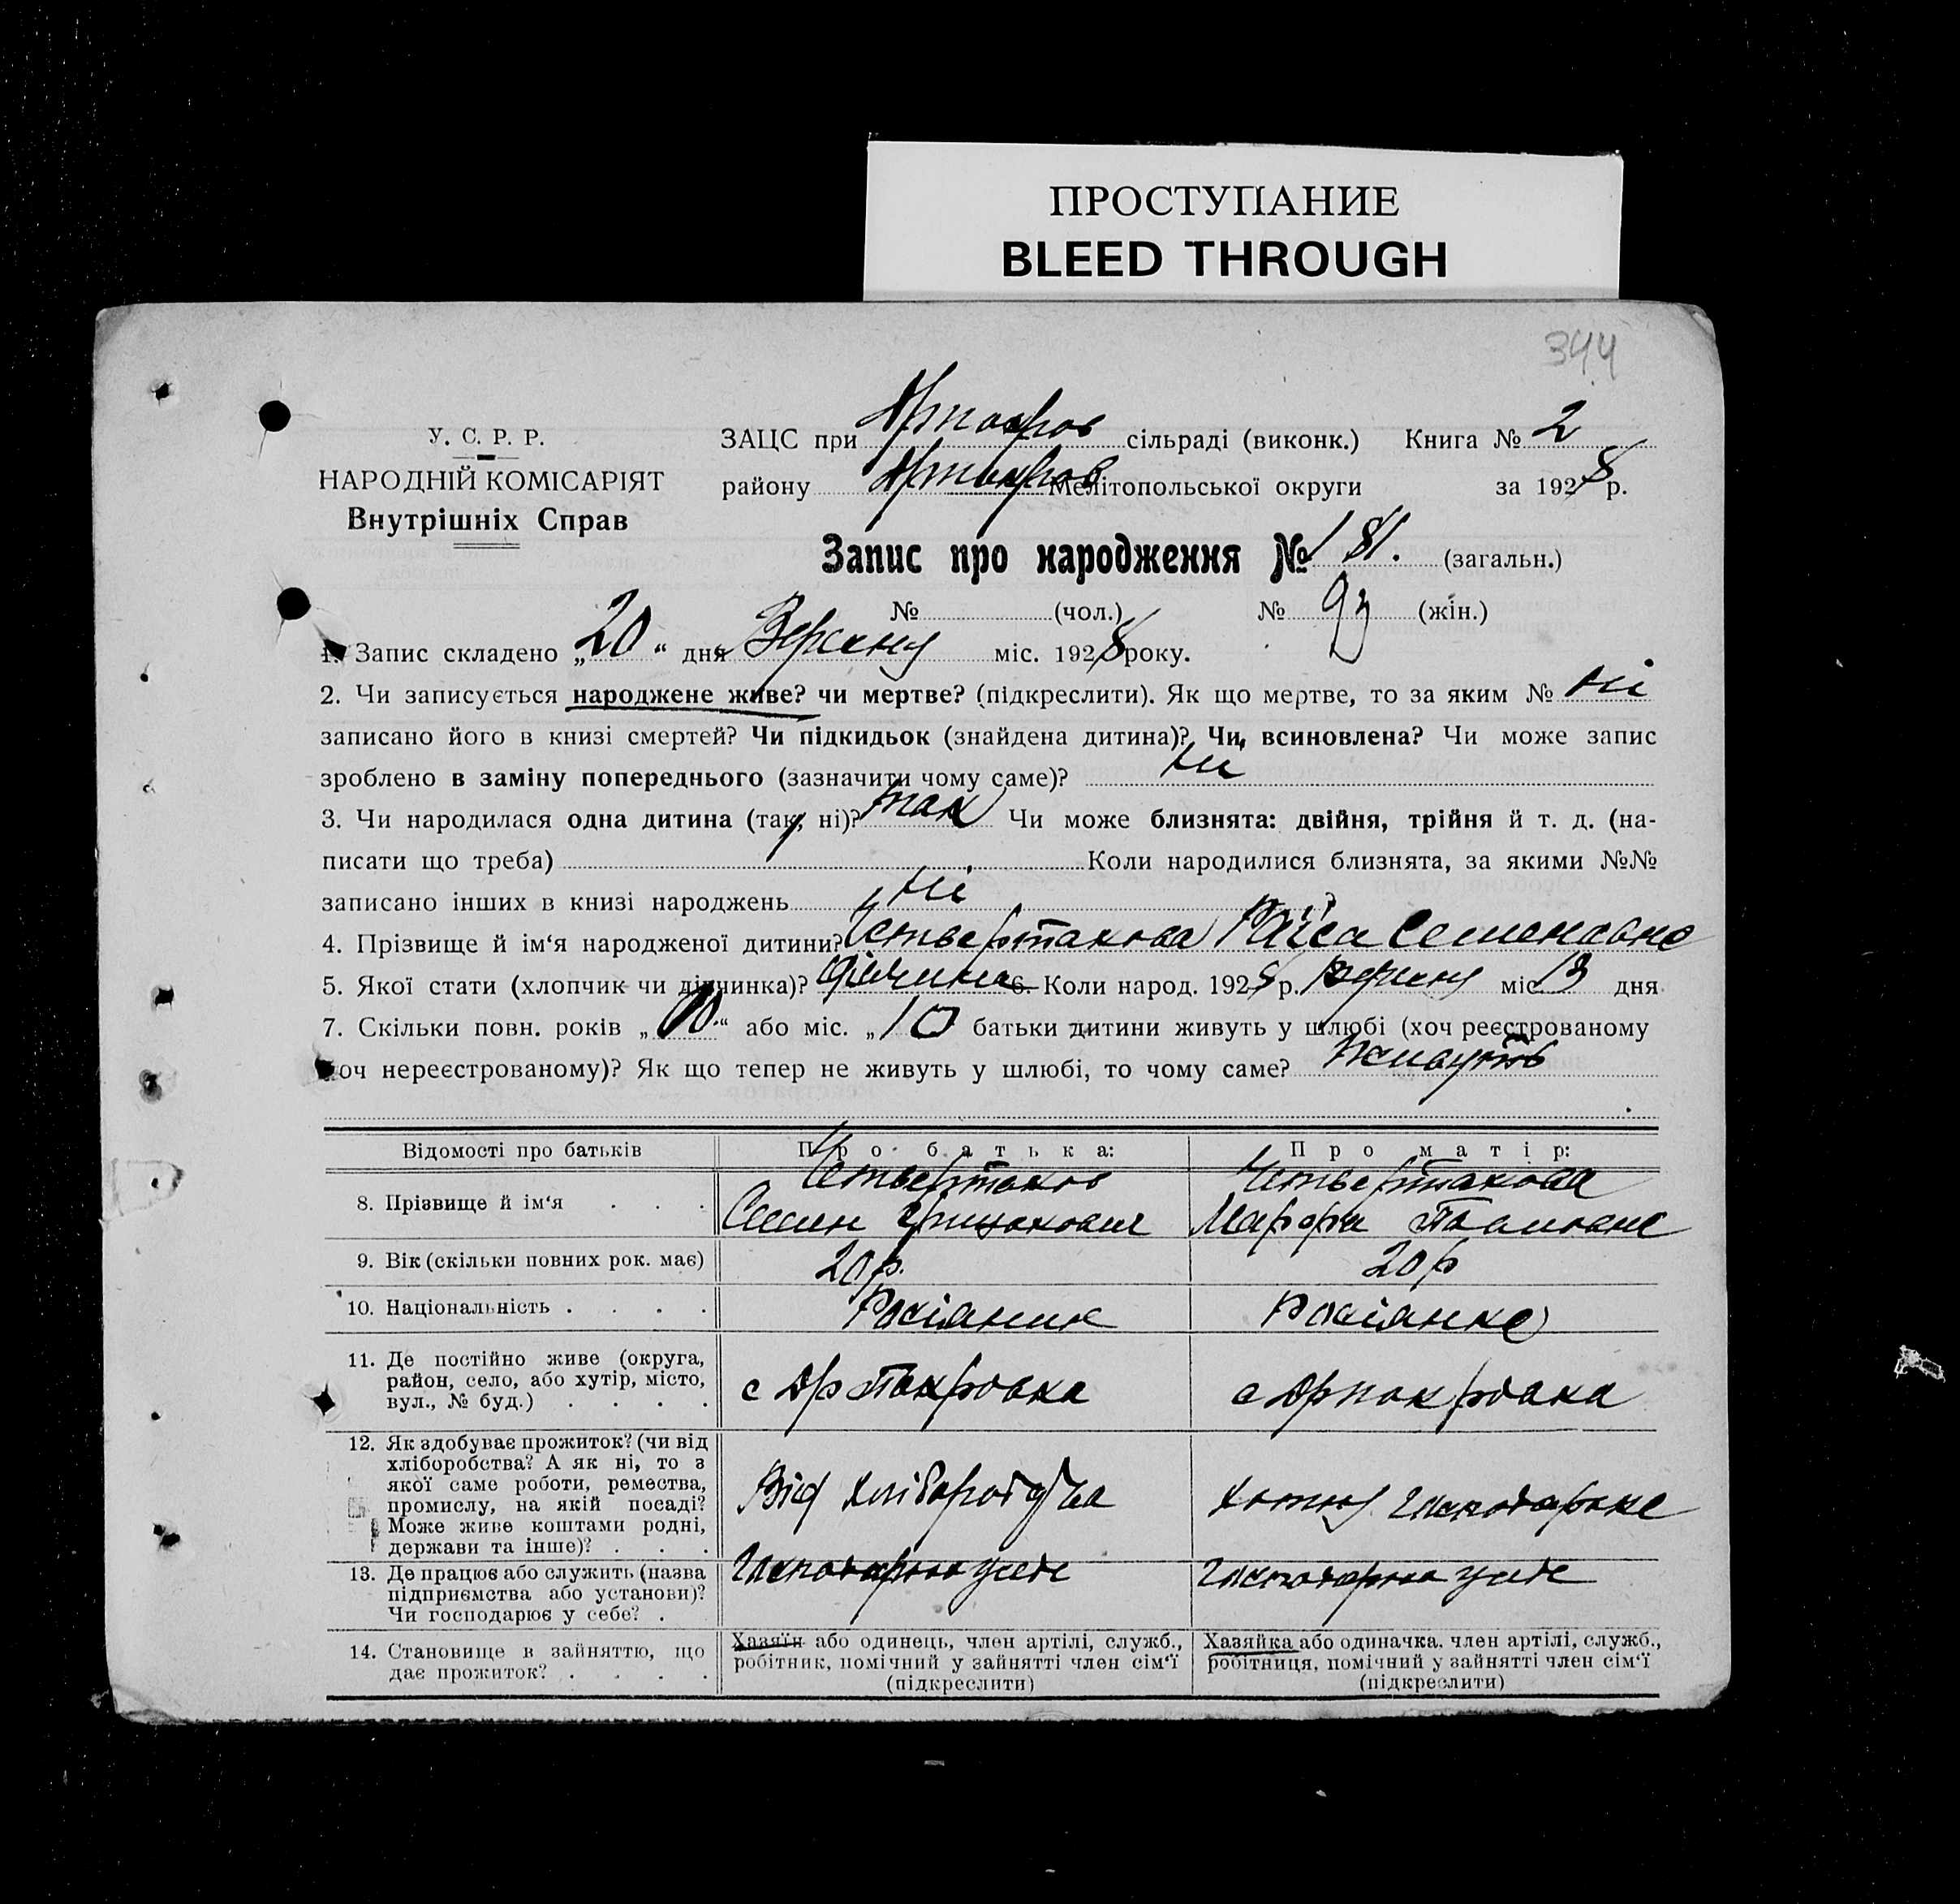 ПРОСТУПАНИЕ
BLEED THROUGH
344
У. С. Р. Р.
НАРОДНІЙ КОМІСАРІЯТ
Внутрішніх Справ
ЗАЦС при сільраді (виконк.) Книга № 2
району Мелітопольської округи за 1928 р.
Запис про народження № 181. (загальн.)
№ (чол.) № 93 (жін.)
1. Запис складено „20“ дня Версену міс. 1928 року.
2. Чи записується народжене живе? чи мертве? (підкреслити). Як що мертве, то за яким № ні
записано його в книзі смертей? Чи підкидьок (знайдена дитина)? Чи всиновлена? Чи може запис
зроблено в заміну попереднього (зазначити чому саме)? ни
3. Чи народилася одна дитина (так, ні)? так Чи може близнята: двійня, трійня й т. д. (на-
писати що треба) Коли народилися близнята, за якими №№
записано інших в книзі народжень ні
4. Прізвище й ім‘я народженої дитини? Четвертакова Раїса Семеновна
5. Якої стати (хлопчик чи дівчинка)? дівчина 6. Коли народ. 1928 р. версну міс 13 дня
7. Скільки повн. років „ “ або міс. „10 батьки дитини живуть у шлюбі (хоч реєстрованому
хоч нереєстрованому)? Як що тепер не живуть у шлюбі, то чому саме? живуть
Відомості про батьків Про батька: Про матір:
8. Прізвище й ім‘я . . . Четвертаков Семен Четвертакова Марфа
9. Вік (скільки повних рок. має) 20 р. 20 р
10. Національність . . . . Росіяник Росіянка
11. Де постійно живе (округа,
район, село, або хутір, місто,
вул., № буд.) . . . .
с Арпакровка с Арпакровка
12. Як здобуває прожиток? (чи від
хліборобства? А як ні, то з
якої саме роботи, ремества,
промислу, на якій посаді?
Може живе коштами родні,
держави та інше)? . . .
Від хліборобства Хатню господарка
13. Де працює або служить (назва
підприємства або установи)?
Чи господарює у себе? .
Господарює у себе Господарює у себе
14. Становище в зайняттю, що
дає прожиток? . . . .
Хазяїн або одинець, член артілі, служб.,
робітник, помічний у зайнятті член сім‘ї
(підкреслити)
Хазяйка або одиначка. член артілі, служб.,
робітниця, помічний у зайнятті член сім‘ї
(підкреслити)